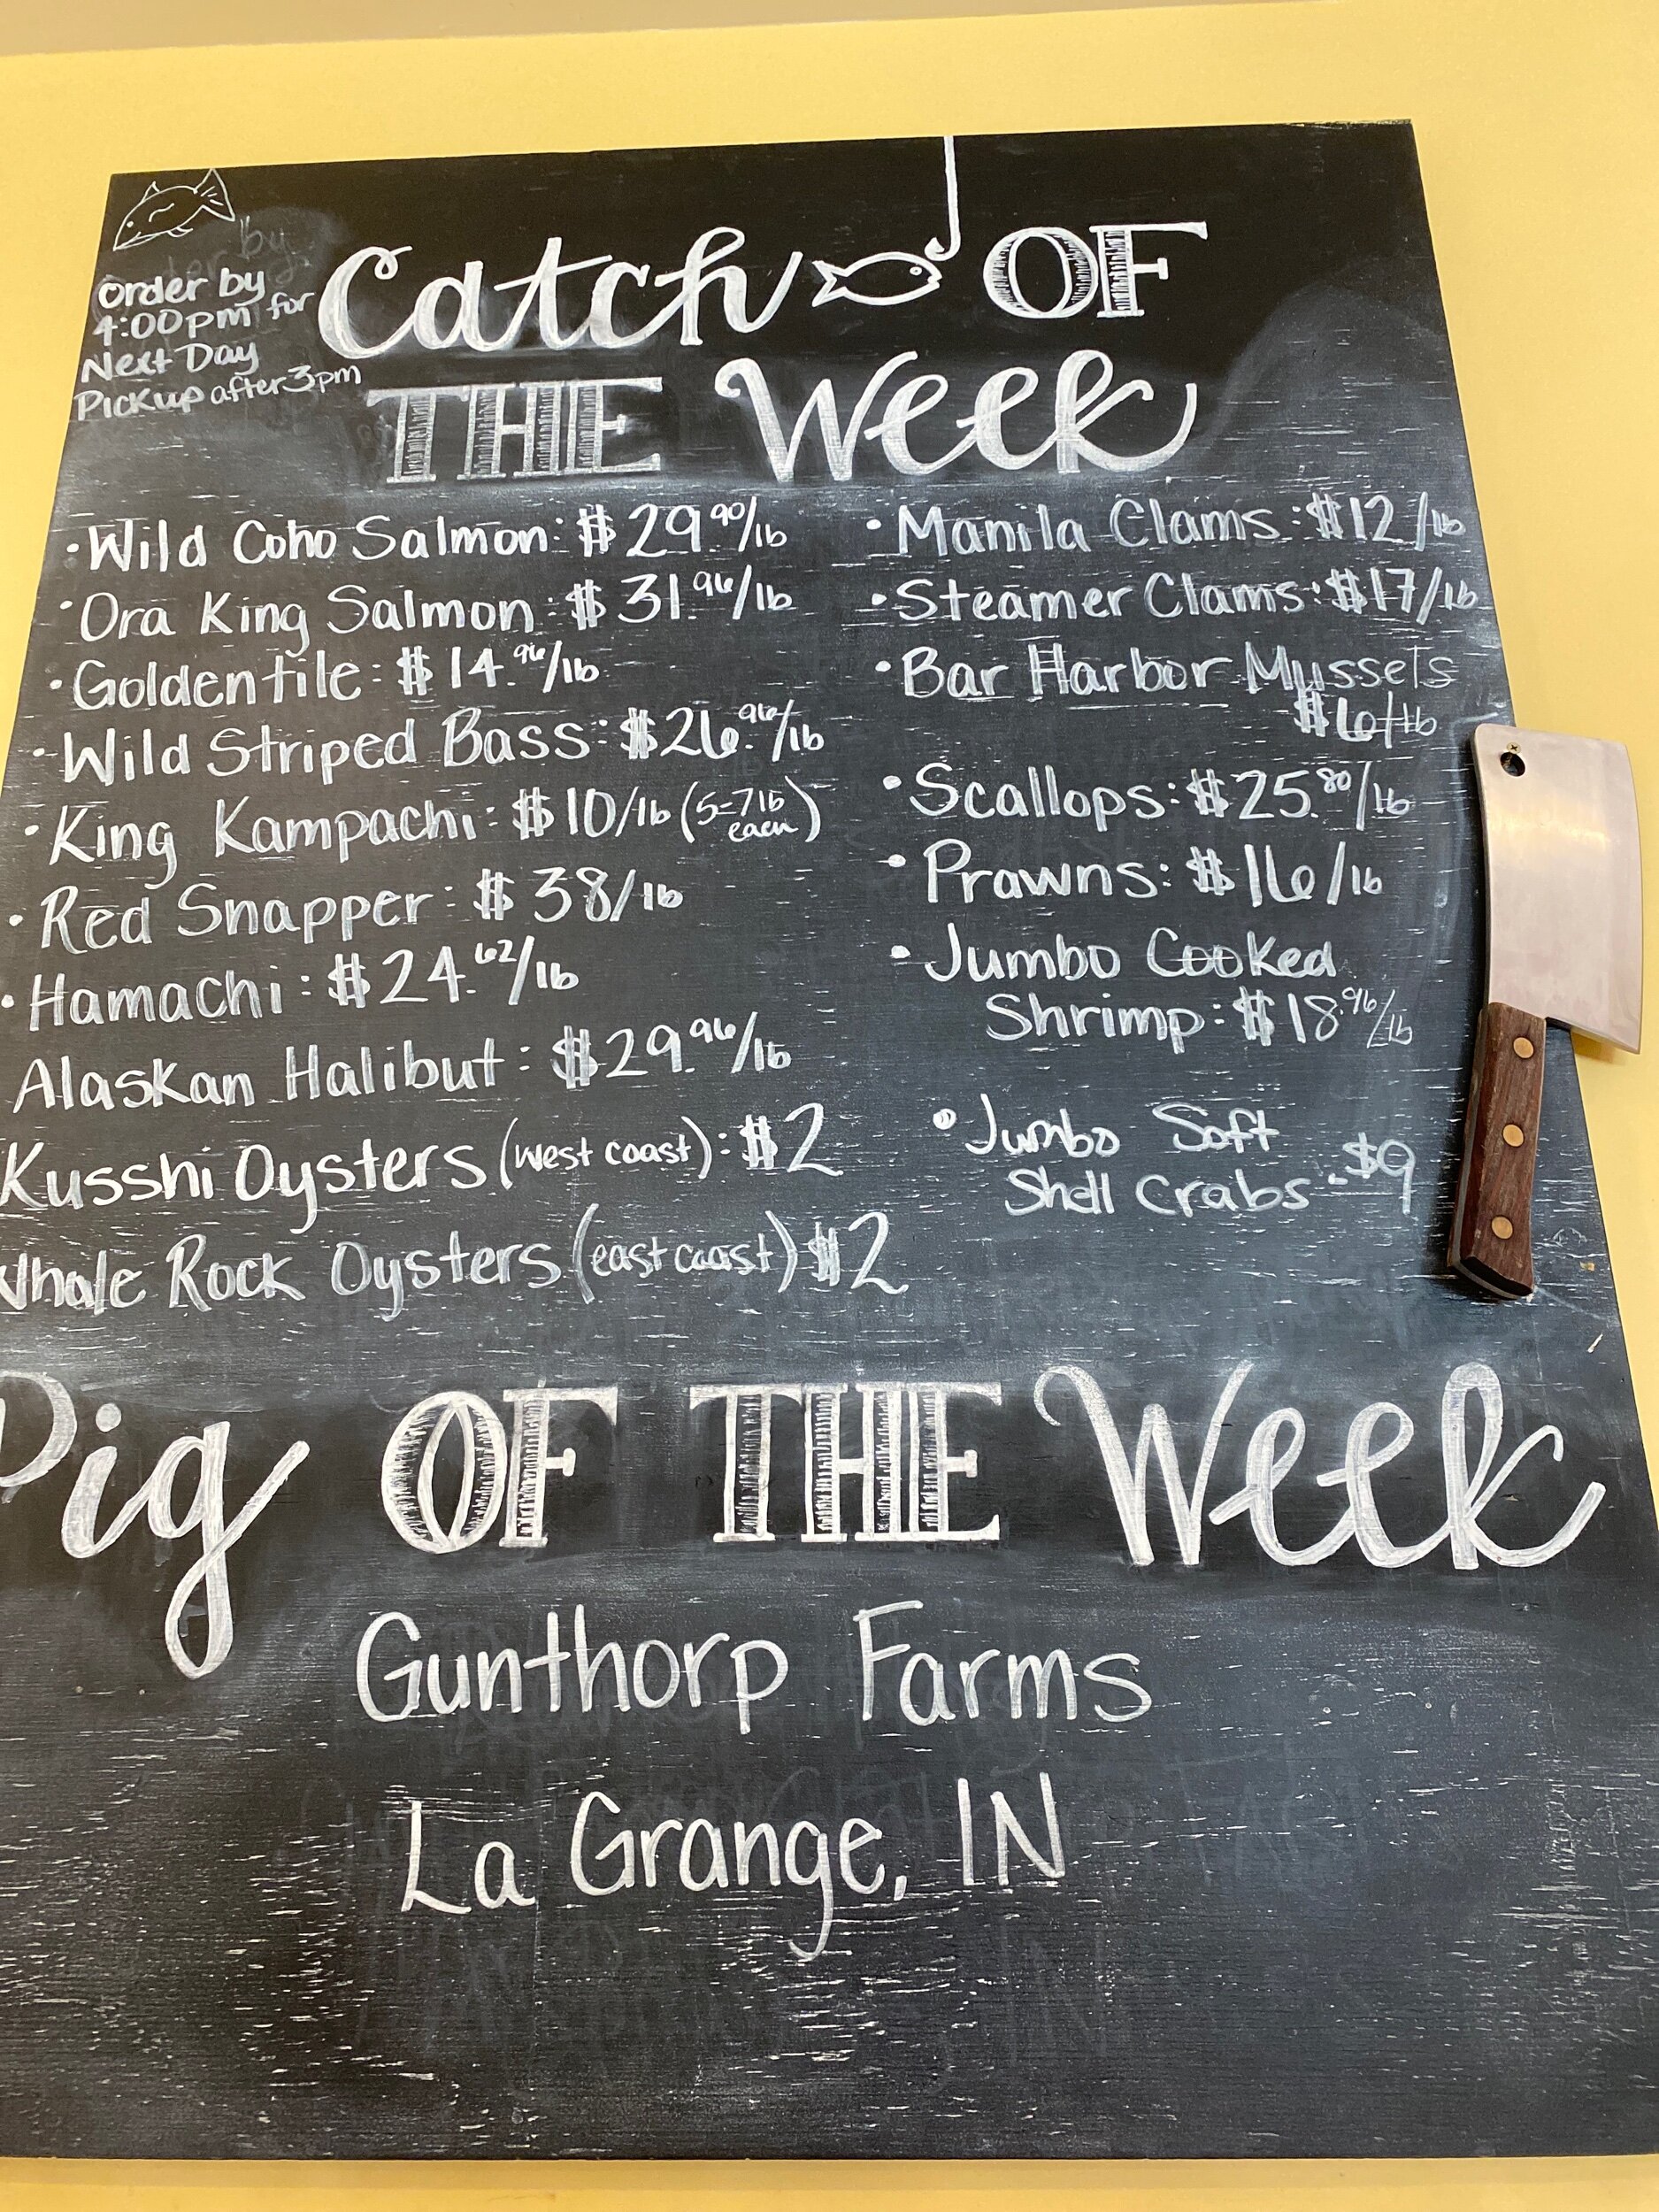 Order by
4:00pm for
Next Day
Pickup after 3pm
Catch OF
THE Week
• Wild Coho Salmon: $29.90/lb
• Ora King Salmon: $31.96/lb
• Golden tile: $14.96/lb
• Wild Striped Bass: $26.96/lb
• King Kampachi: $10/lb (5-7lb each)
• Red Snapper: $38/lb
• Hamachi: $24.62/lb
Alaskan Halibut: $29.96/lb
Kusshi Oysters (west coast): $2
Whale Rock Oysters (east coast) $2
• Manila Clams: $12/lb
• Steamer Clams: $17/lb
• Bar Harbor Mussels
$6/lb
• Scallops: $25.80/lb
• Prawns: $16/lb
• Jumbo Cooked
Shrimp: $18.96/lb
• Jumbo Soft
Shell Crabs: $9
Pig OF THE Week
Gunthorp Farms
La Grange, IN